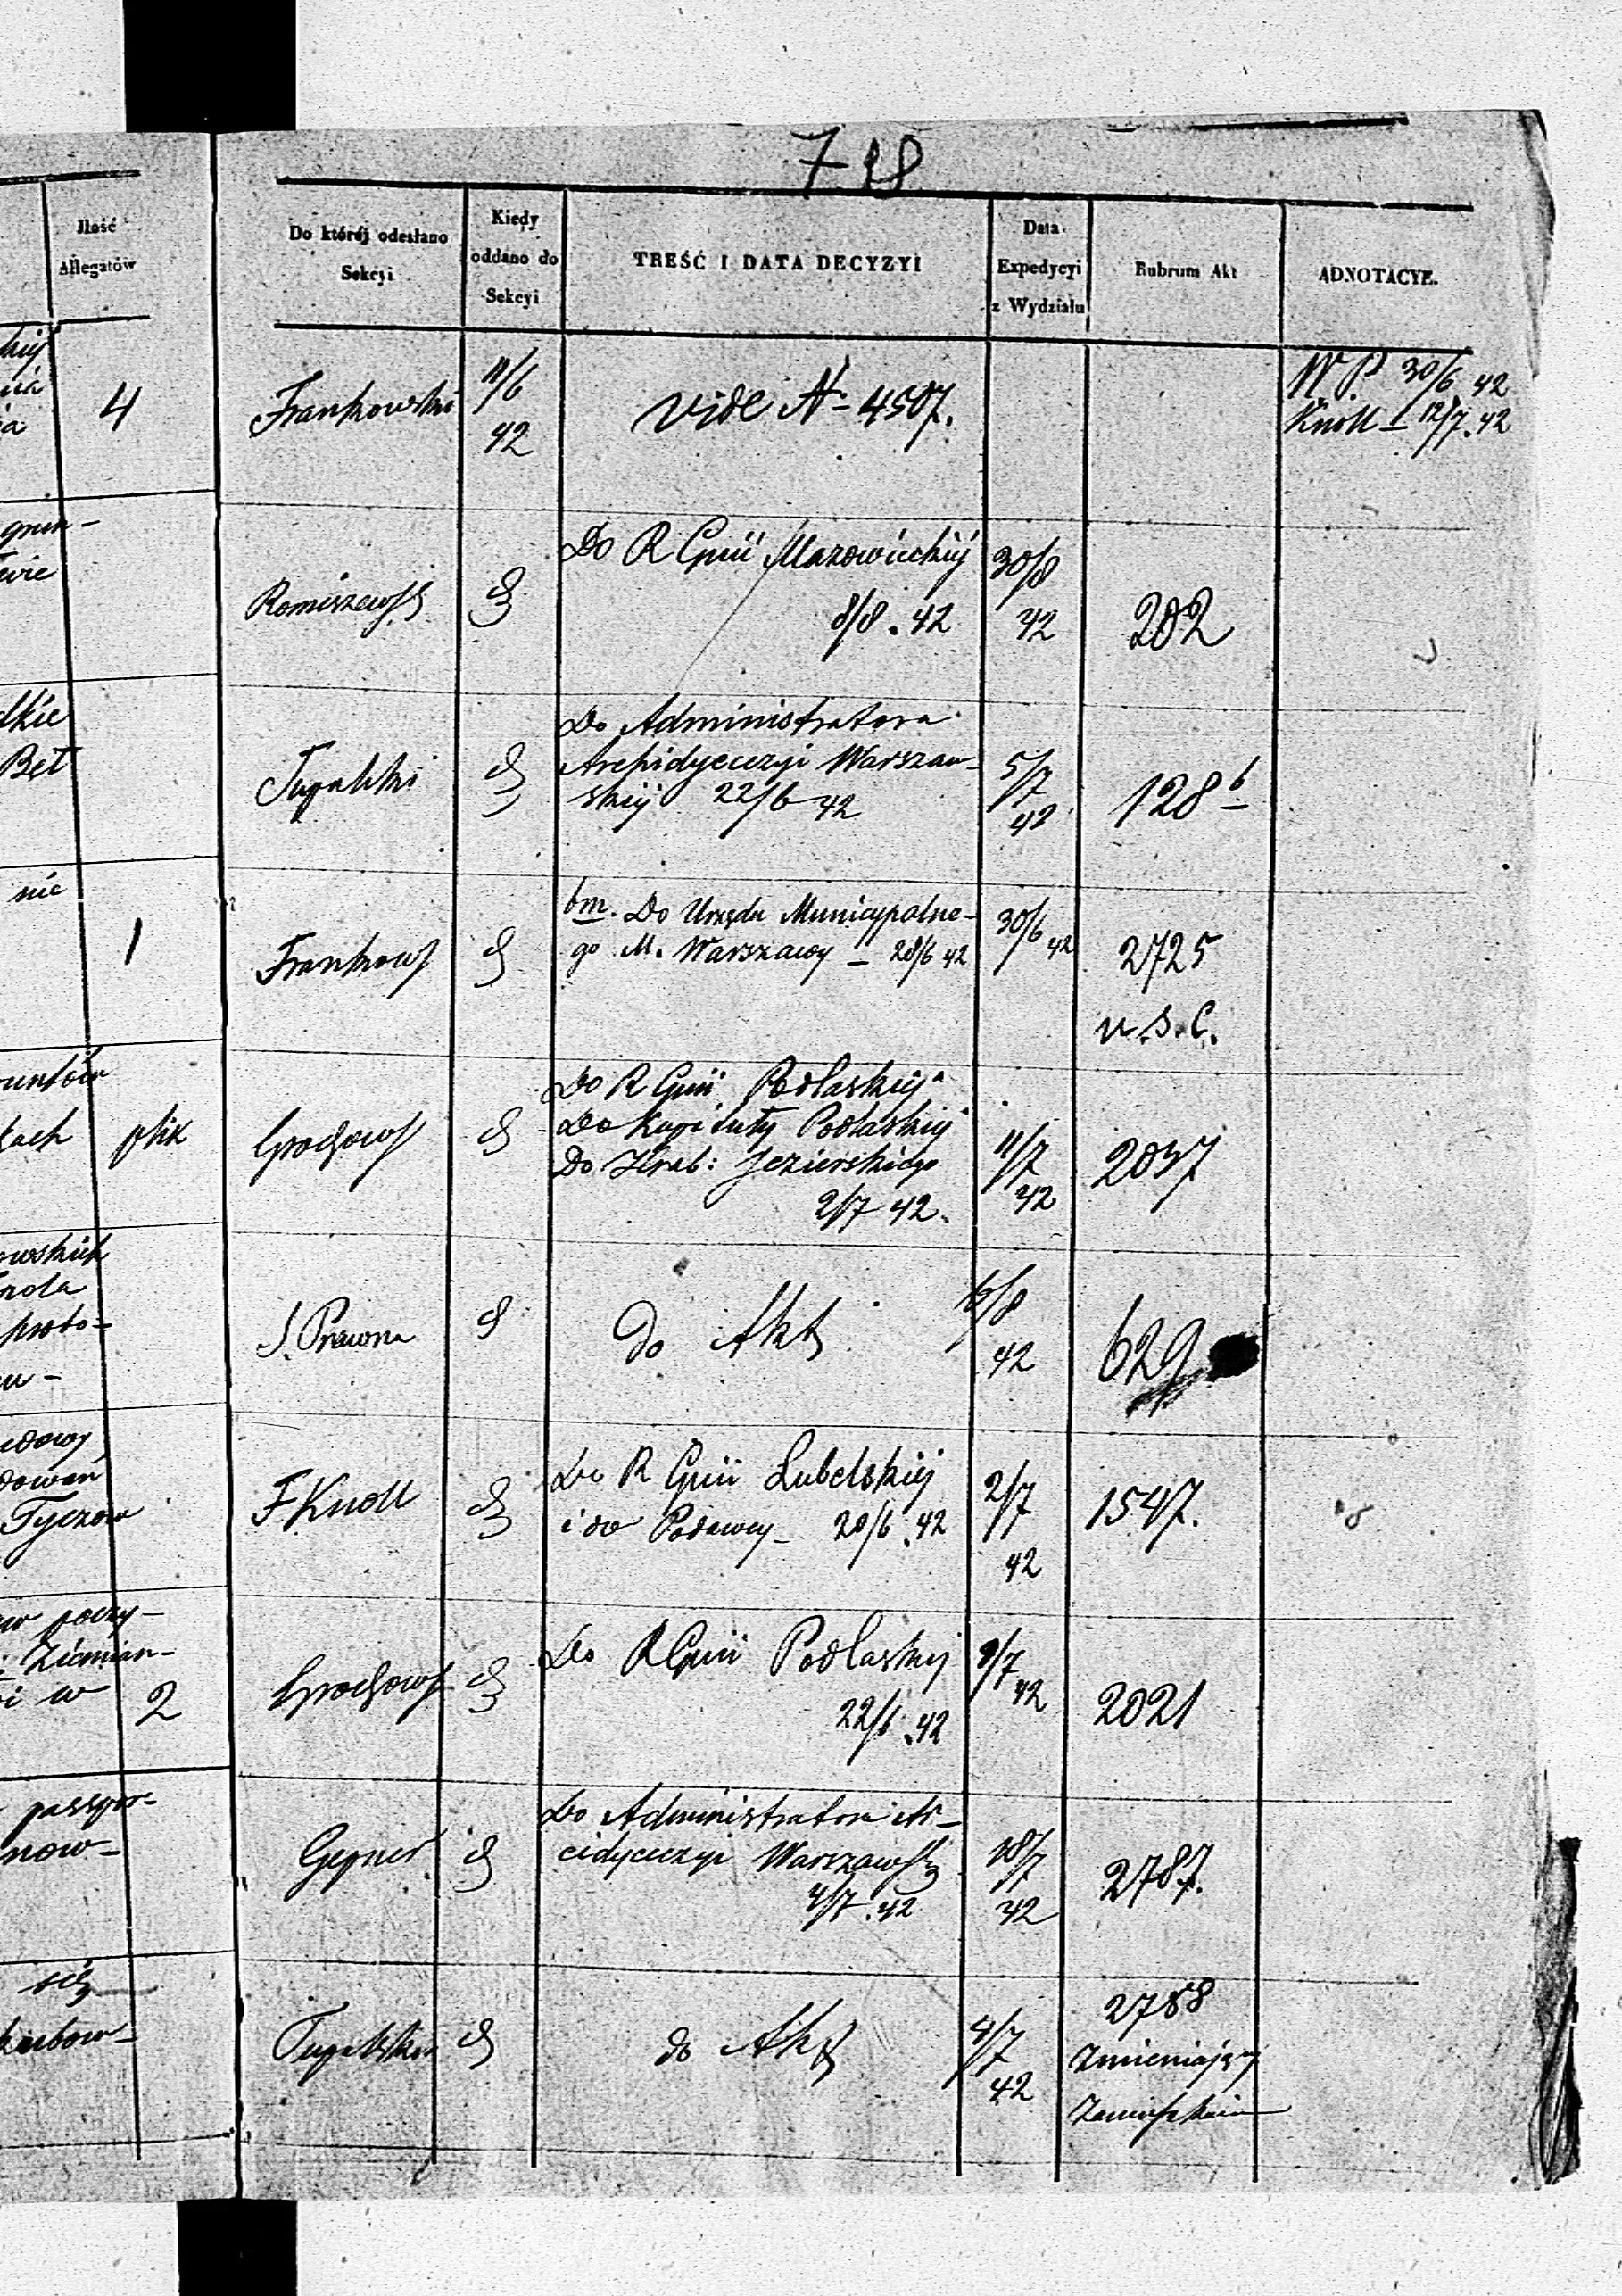 718
Ilość
Allegatów
Do któréj odesłano
Sekcyi
Kiedy
oddano do
Sekcyi
TREŚĆ I DATA DECYZYI
Data
Expedycyi
z Wydziału
Rubrum Akt
ADNOTACYE.
4
Frankowski
11/6
42
vide N– 4507.
W. P. 30/6 42
Knoll – 12/7. 42
grun–
Do R Gnii Mazowieckiéj
30/8
8/8 . 42
42
202
Do Administratora
Bęt
Archidyecezyi Warszaw–
skiéj 22/6 42
5/7
42
128 b
nie
1
Frankows
bm. Do Urzędu Municypalne–
go M. Warszawy – 28/6 42
30/6 42
2725
u. s. C.
plik
Grochows
Do R Gnii Podlaskiéj
Do Kapituły Podlaskiéj
Do Hrab: Jezierskiego
2/7 42.
11/7
42
2037
owskich
probo–
S. Prawna
do Akt
42
629
Tyczow
F Knoll
Do R Gnii Lubelskiéj
i do Podawcy – 20/6 . 42
2/7
42
1547.
w poczy–
Ziemian–
i w
2
Grochows
Do R Gnii Podlaskiéj
22/6 . 42
9/7
42
2021
passpor–
now–
Gepner
Do Administratora Ar–
cidyecezyi Warszaws
4/7 . 42
18/7
42
2787.
się
do Akt
4/7
42
2788
Zmieniający